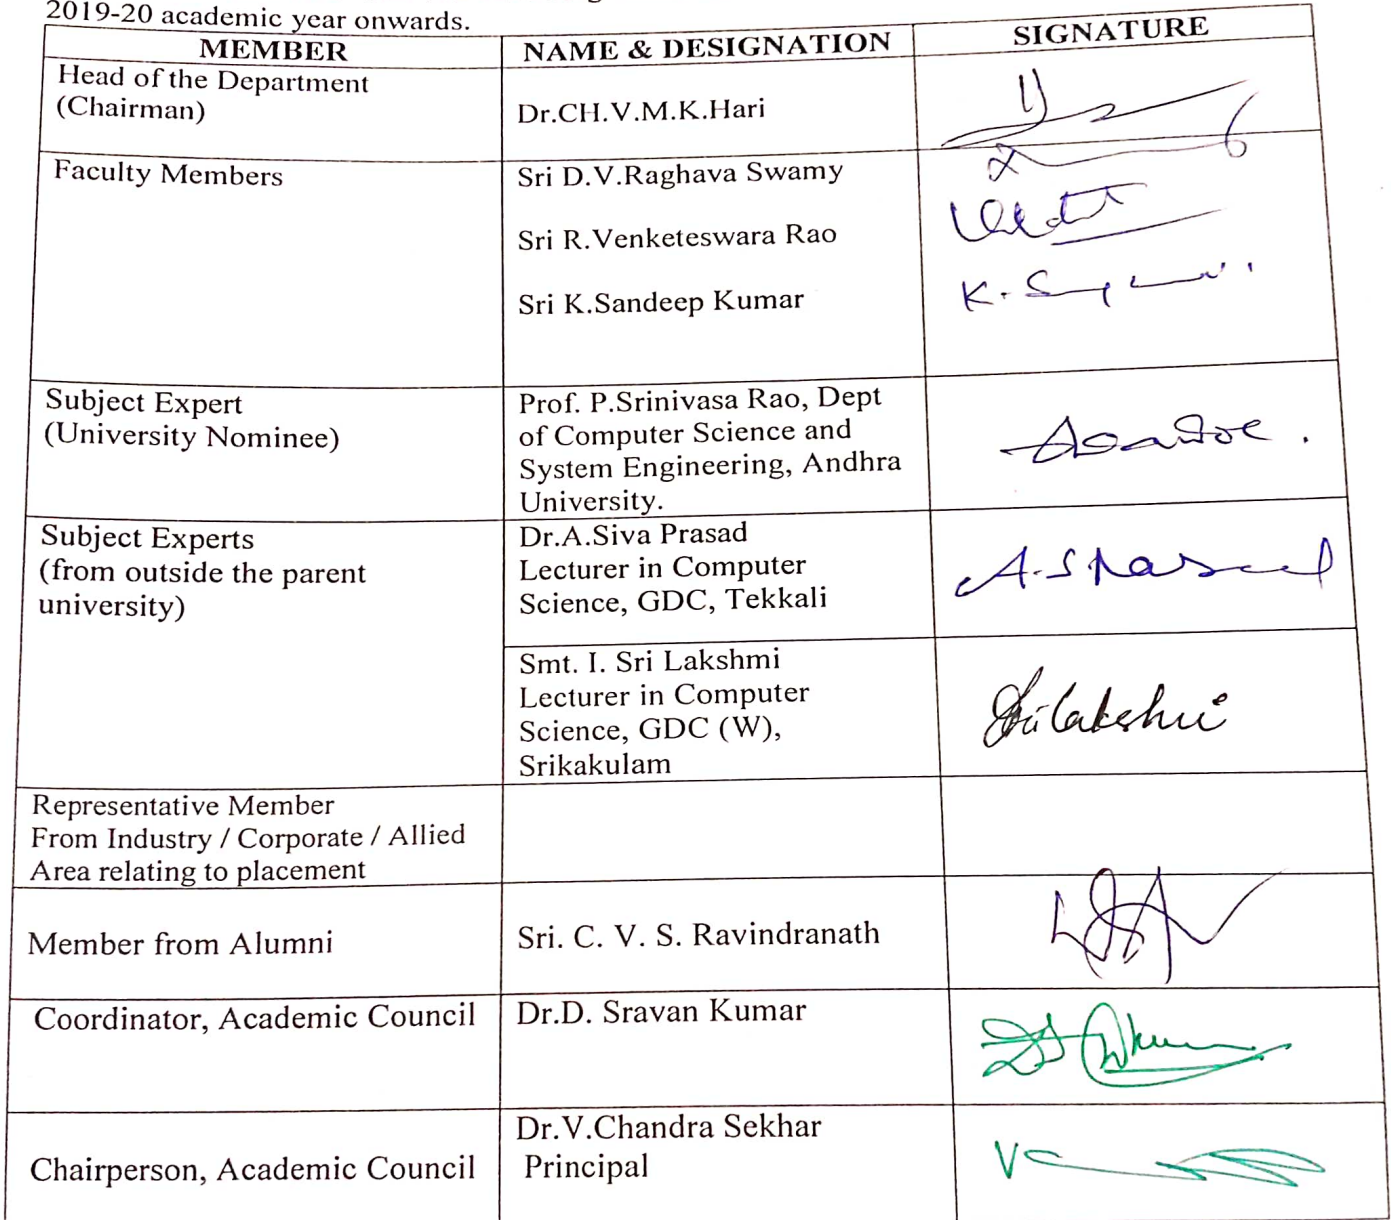 2019-20 academic year onwards.
MEMBER NAME & DESIGNATION SIGNATURE
Head of the Department
(Chairman)
Dr.CH.V.M.K.Hari
Faculty Members
Sri D.V.Raghava Swamy
Sri R.Venketeswara Rao
Sri K.Sandeep Kumar
Subject Expert
(University Nominee)
Prof. P.Srinivasa Rao, Dept
of Computer Science and
System Engineering, Andhra
University.
Subject Experts
(from outside the parent
university)
Dr.A.Siva Prasad
Lecturer in Computer
Science, GDC, Tekkali
A.S Prasad
Smt. I. Sri Lakshmi
Lecturer in Computer
Science, GDC (W),
Srikakulam
Srilakshmi
Representative Member
From Industry / Corporate / Allied
Area relating to placement
Member from Alumni
Sri. C. V. S. Ravindranath
Coordinator, Academic Council
Dr.D. Sravan Kumar
Chairperson, Academic Council
Dr.V.Chandra Sekhar
Principal